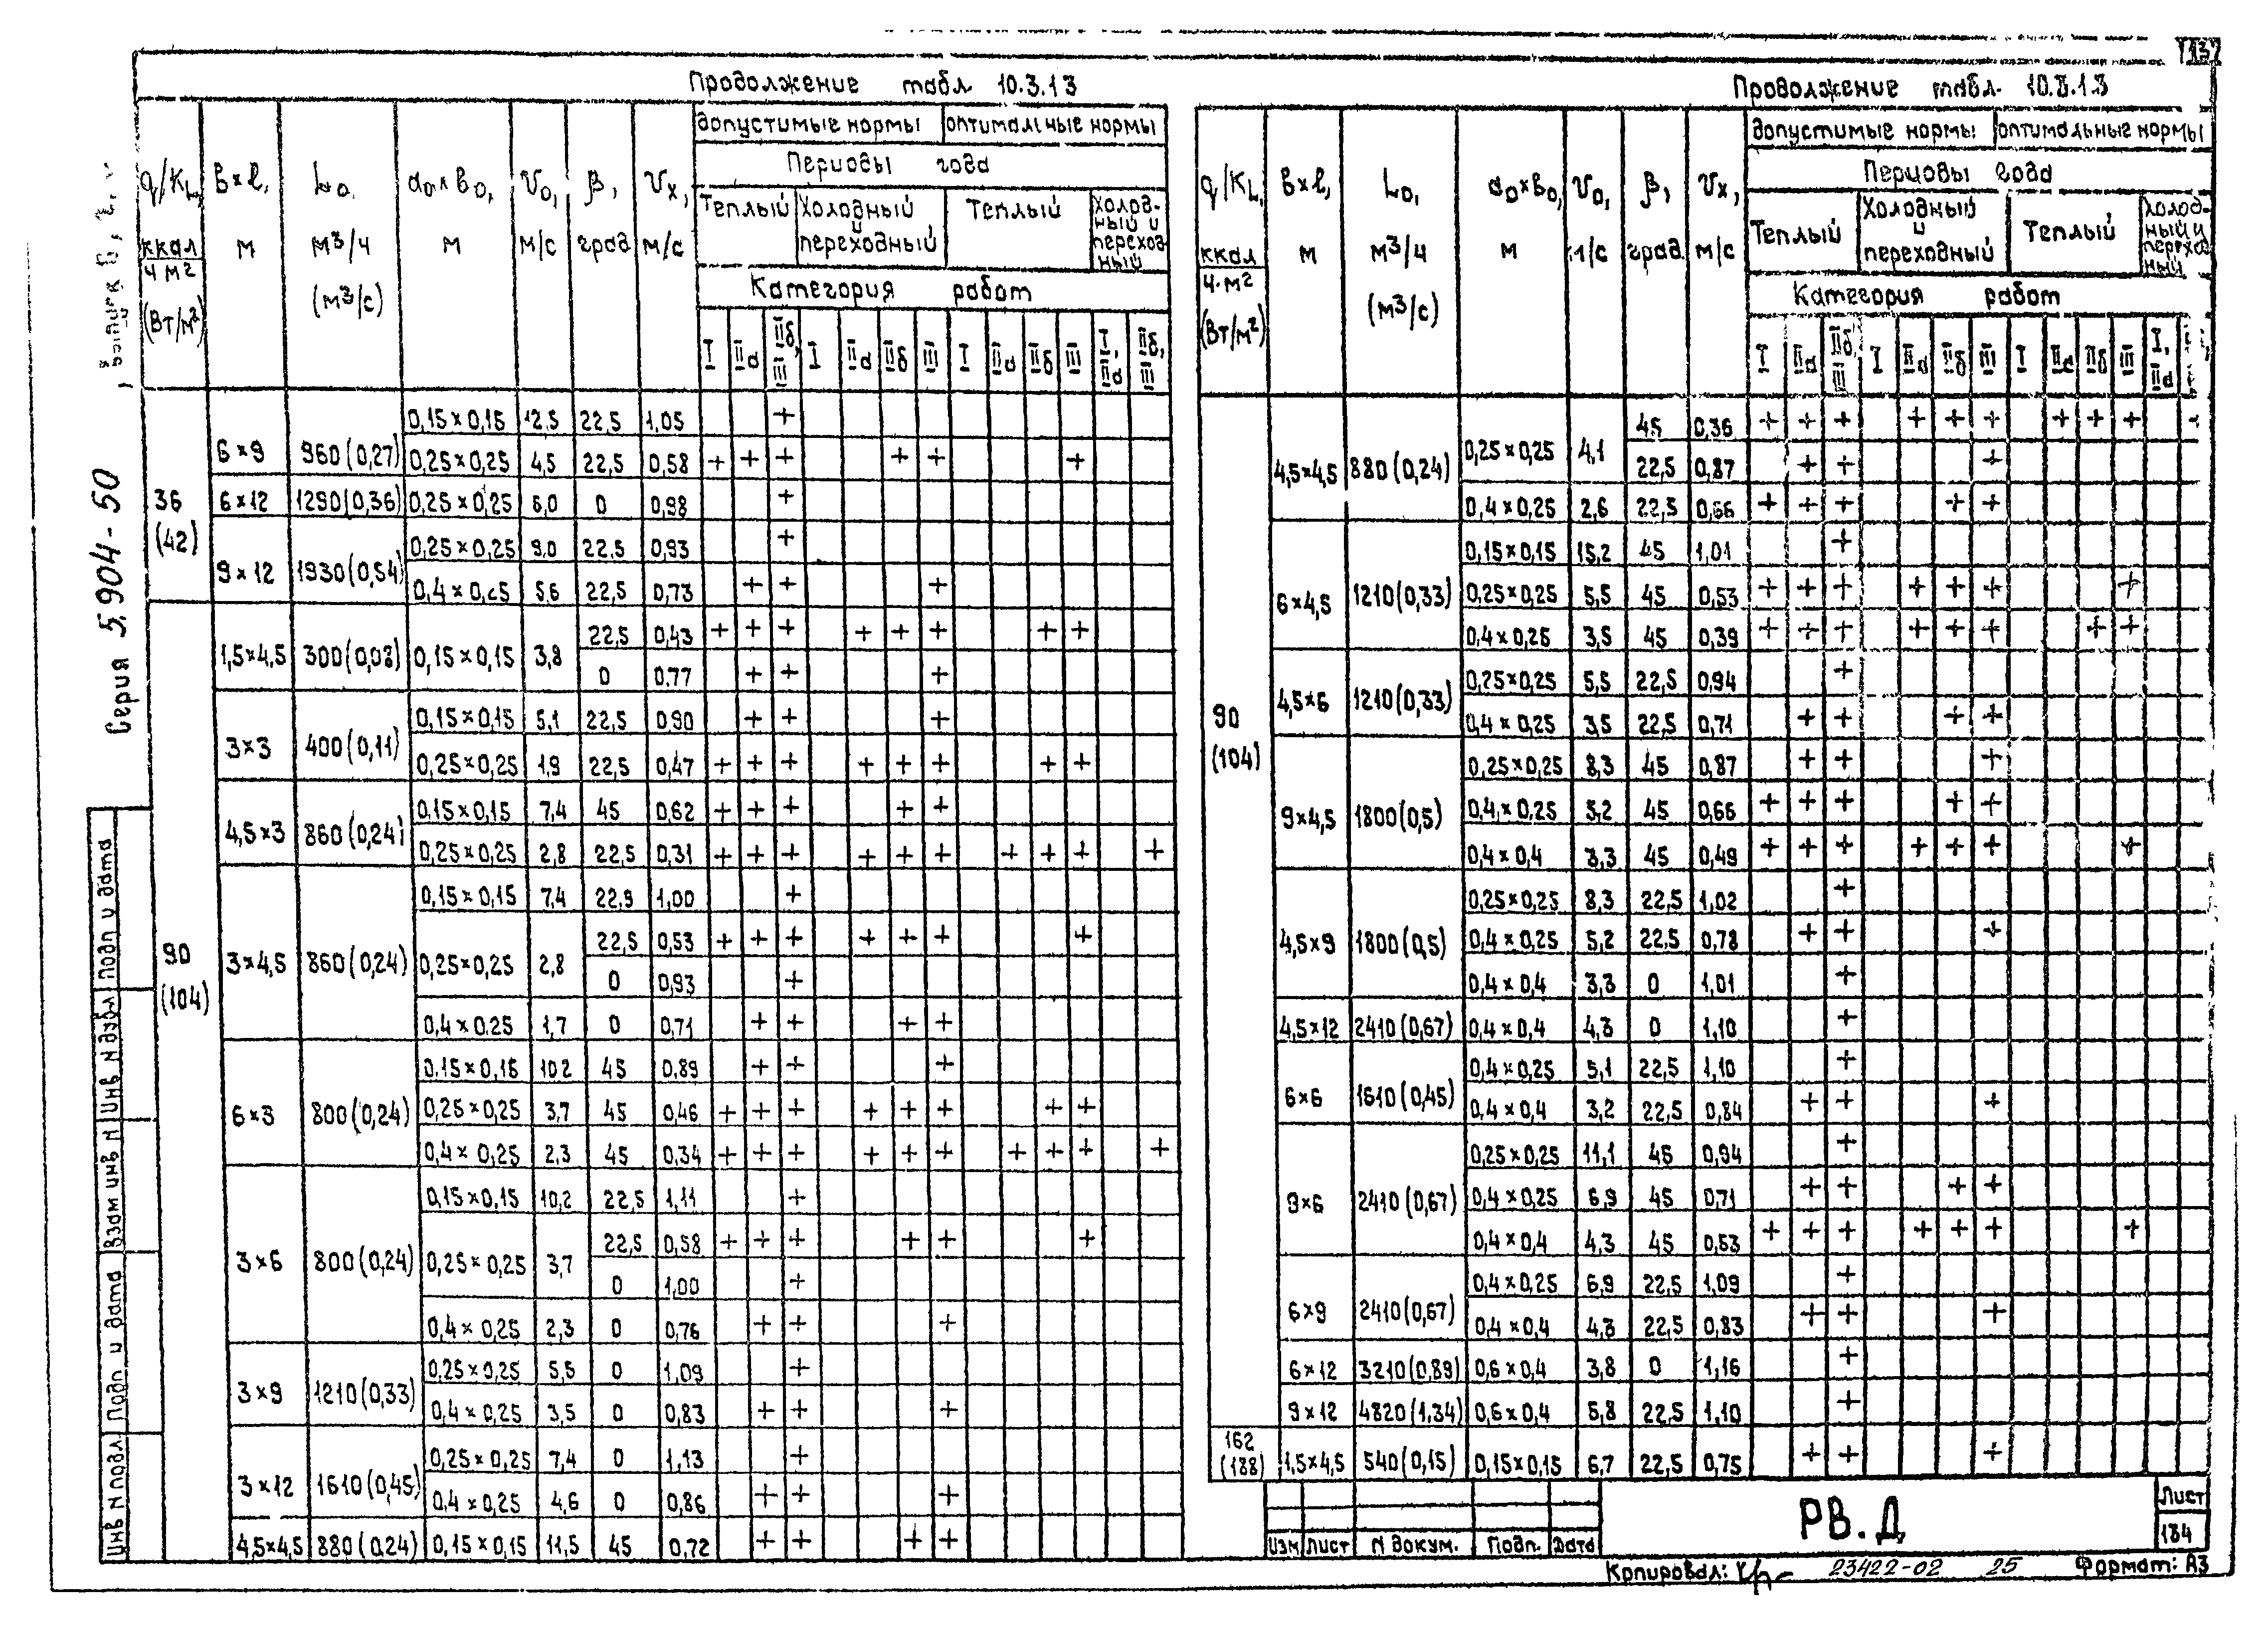 137
Продолжение табл 10.3.13
q/KL, ккал/ч м² (Вт/м²) | в×ℓ, м | L₀, м³/ч (м³/с) | a₀×в₀, м | V₀, м/с | β, град | Vx, м/с | допустимые нормы | оптимальные нормы
Периоды года
Теплый | Холодный и переходный | Теплый | Холодный и переходный
Категория работ
I | IIа | IIб, III | I | IIа | IIб | III | I | IIа | IIб | III | I, IIа | IIб, III
36 (42) | 6×9 | 960(0,27) | 0,15×0,15 | 12.5 | 22,5 | 1,05 | +
0,25×0,25 | 4,5 | 22,5 | 0,58 | + + + + + +
6×12 | 1290(0,36) | 0,25×0,25 | 6,0 | 0 | 0,98 | +
9×12 | 1930(0,54) | 0,25×0,25 | 9,0 | 22,5 | 0,93 | +
0,4×0,25 | 5,6 | 22,5 | 0,73 | + + +
90 (104) | 1,5×4,5 | 300(0,08) | 0,15×0,15 | 3,8 | 22,5 | 0,43 | + + + + + + + +
0 | 0,77 | + + +
3×3 | 400(0,11) | 0,15×0,15 | 5,1 | 22,5 | 0,90 | + + +
0,25×0,25 | 1,9 | 22,5 | 0,47 | + + + + + + + +
4,5×3 | 860(0,24) | 0,15×0,15 | 7,4 | 45 | 0,62 | + + + + +
0,25×0,25 | 2,8 | 22,5 | 0,31 | + + + + + + + + + +
3×4,5 | 860(0,24) | 0,15×0,15 | 7,4 | 22,5 | 1,00 | +
0,25×0,25 | 2,8 | 22,5 | 0,53 | + + + + + + +
0 | 0,93 | +
0,4×0,25 | 1,7 | 0 | 0,71 | + + + +
6×3 | 800(0,24) | 0,15×0,15 | 10,2 | 45 | 0,89 | + + +
0,25×0,25 | 3,7 | 45 | 0,46 | + + + + + + + +
0,4×0,25 | 2,3 | 45 | 0,34 | + + + + + + + + + +
3×6 | 800(0,24) | 0,15×0,15 | 10,2 | 22,5 | 1,11 | +
0,25×0,25 | 3,7 | 22,5 | 0,58 | + + + + + +
0 | 1,00 | +
0,4×0,25 | 2,3 | 0 | 0,76 | + + +
3×9 | 1210(0,33) | 0,25×0,25 | 5,5 | 0 | 1,09 | +
0,4×0,25 | 3,5 | 0 | 0,83 | + + +
3×12 | 1610(0,45) | 0,25×0,25 | 7,4 | 0 | 1,13 | +
0,4×0,25 | 4,6 | 0 | 0,86 | + + +
4,5×4,5 | 880(0,24) | 0,15×0,15 | 11,5 | 45 | 0,72 | + + + +
Продолжение табл. 10.3.13
q/KL, ккал/ч·м² (Вт/м²) | в×ℓ, м | L₀, м³/ч (м³/с) | a₀×в₀, м | V₀, м/с | β, град | Vx, м/с | допустимые нормы | оптимальные нормы
Периоды года
Теплый | Холодный и переходный | Теплый | Холодный и переходный
Категория работ
I | IIа | IIб, III | I | IIа | IIб | III | I | IIа | IIб | III | I, IIа
90 (104) | 4,5×4,5 | 880(0,24) | 0,25×0,25 | 4,1 | 45 | 0,36 | + + + + + + + + + +
22,5 | 0,87 | + + +
0,4×0,25 | 2,6 | 22,5 | 0,66 | + + + + +
6×4,5 | 1210(0,33) | 0,15×0,15 | 15,2 | 45 | 1,01 | +
0,25×0,25 | 5,5 | 45 | 0,53 | + + + + + + +
0,4×0,25 | 3,5 | 45 | 0,39 | + + + + + + + +
4,5×6 | 1210(0,33) | 0,25×0,25 | 5,5 | 22,5 | 0,94 | +
0,4×0,25 | 3,5 | 22,5 | 0,71 | + + + +
9×4,5 | 1800(0,5) | 0,25×0,25 | 8,3 | 45 | 0,87 | + + +
0,4×0,25 | 5,2 | 45 | 0,66 | + + + + +
0,4×0,4 | 3,3 | 45 | 0,49 | + + + + + + +
4,5×9 | 1800(0,5) | 0,25×0,25 | 8,3 | 22,5 | 1,02 | +
0,4×0,25 | 5,2 | 22,5 | 0,78 | + + +
0,4×0,4 | 3,3 | 0 | 1,01 | +
4,5×12 | 2410(0,67) | 0,4×0,4 | 4,3 | 0 | 1,10 | +
6×6 | 1610(0,45) | 0,4×0,25 | 5,1 | 22,5 | 1,10 | +
0,4×0,4 | 3,2 | 22,5 | 0,84 | + + +
9×6 | 2410(0,67) | 0,25×0,25 | 11,1 | 45 | 0,94 | +
0,4×0,25 | 6,9 | 45 | 0,71 | + + + +
0,4×0,4 | 4,3 | 45 | 0,53 | + + + + + + +
6×9 | 2410(0,67) | 0,4×0,25 | 6,9 | 22,5 | 1,09 | +
0,4×0,4 | 4,3 | 22,5 | 0,83 | + + +
6×12 | 3210(0,89) | 0,6×0,4 | 3,8 | 0 | 1,16 | +
9×12 | 4820(1,34) | 0,6×0,4 | 5,8 | 22,5 | 1,10 | +
162 (188) | 1,5×4,5 | 540(0,15) | 0,15×0,15 | 6,7 | 22,5 | 0,75 | + + +
Изм Лист N докум. Подп. Дата
РВ.Д
Лист
184
Копировал: 23422-02 25 Формат: А3
Серия 5.904-50
Подп и дата
Инв N дубл
Взам инв N
Подп и дата
Инв N подл.